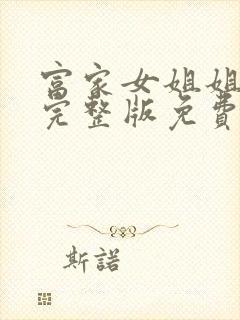 富家女姐姐
完整版免費
斯諾